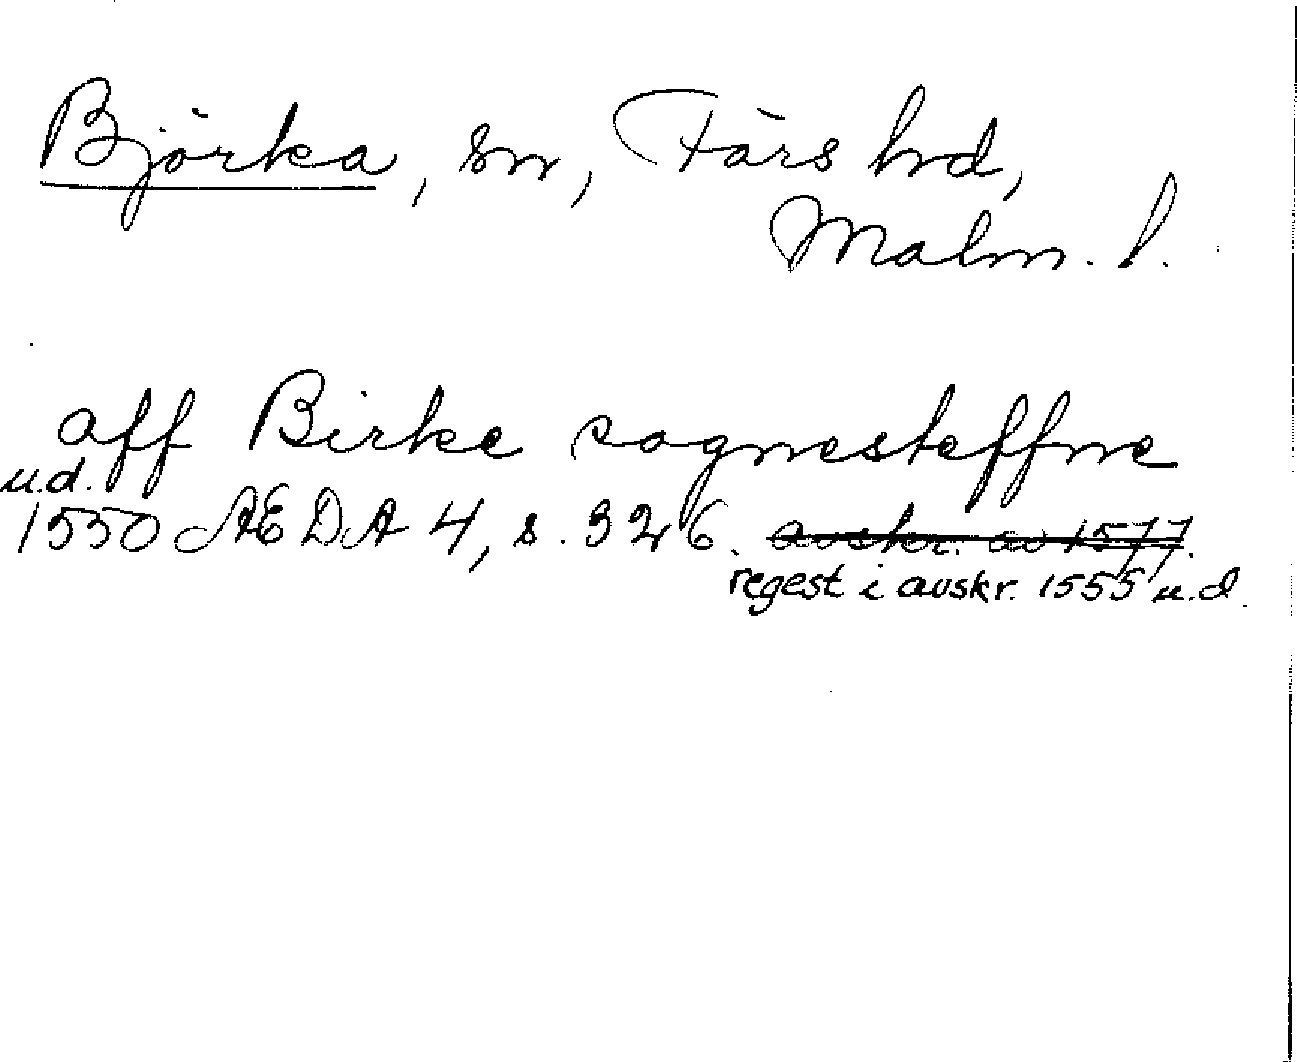 Björka, sn, Färs hd,
Malm. l.
aff Birke sognesteffne
u.d.
1550 AEDA 4, s. 326. avskr. av 1577.
regest i avskr. 1555 u.d.